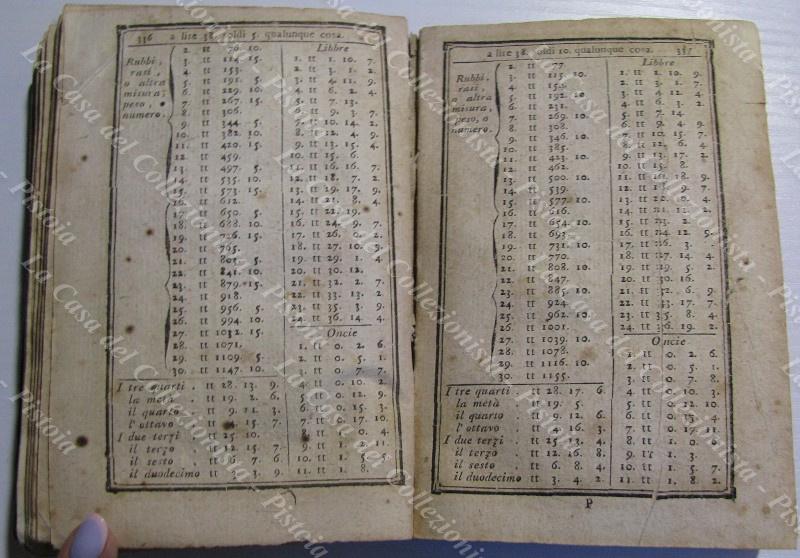 336 a lire 38. soldi 5. qualunque cosa.
Rubbi,
rasi,
o altra
misura,
peso, o
numero.
2. tt 76. 10.
3. tt 114 15.
4. tt 153.
5. tt 191. 5.
6. tt 229. 10.
7. tt 267. 15.
8. tt 306.
9. tt 344. 5.
10. tt 382. 10.
11. tt 420. 15.
12. tt 459.
13. tt 497. 5.
14. tt 535. 10.
15. tt 573. 15.
16. tt 612.
17. tt 650. 5.
18. tt 688. 10.
19. tt 726. 15.
20. tt
21. tt 5.
22. tt 841. 10.
23. tt 879. 15.
24. tt 918.
25. tt 956. 5.
26. tt 994. 10.
27. tt 1032. 15.
28. tt 1071.
29. tt 1109. 5.
30. tt 1147. 10.
Libbre
1. tt 1. 10. 7.
2. tt 3. 1. 2.
3. tt 4. 11. 9.
4. tt 6. 2. 4.
5. tt 7. 13.
6. tt 9. 3. 7.
7. tt 10. 14. 2.
8. tt 12. 4. 9.
9. tt 13. 15. 4.
10. tt 15. 6.
11. tt 16. 16. 7.
12. tt 18. 7. 2.
13. tt 19. 17. 9.
14. tt 21. 8. 4.
15. tt 22. 19.
16. tt 24. 9. 7.
17. tt 26. 0. 2.
18. tt 27. 10. 9.
19. tt 29. 1. 4.
20. tt 30. 12.
21. tt 32. 2. 7.
22. tt 33. 13. 2.
23. tt 35. 3. 9.
24. tt 36. 14 4.
Oncie
1. tt 0. 2. 6.
2. tt 0. 5. 1.
3. tt 0. 7. 7.
4. tt 0. 10. 2.
5. tt 0. 12. 9.
6. tt 0. 15. 3.
7. tt 0. 17. 10
8. tt 1. 0. 4.
9. tt 1. 2. 11.
10. tt 1. 5. 5.
11. tt 1. 8.
I tre quarti tt 28. 13. 9.
la metà . tt 19. 2. 6.
il quarto . tt 9. 11. 3.
l'ottavo . tt 4. 15. 7.
I due terzi . tt 25. 10.
il terzo . tt 12. 15.
il sesto . tt 6. 7. 6.
il duodecimo tt 3. 3. 9.
a lire 38. soldi 10. qualunque cosa. 337
Rubbi,
rasi,
o altra
misura,
peso, o
numero.
2. tt 77.
3. tt 115. 10.
4. tt
5. tt 192. 10
6. tt 231.
7. tt 269. 10.
8. tt 308.
9. tt 346. 10.
10. tt 385.
11. tt 423. 10.
12. tt 462.
13. tt 500. 10.
14. tt 539.
15. tt 577. 10.
16. tt 616.
17. tt 654. 10.
18. tt 693.
19. tt 731. 10.
20. tt 770.
21. tt 808. 10.
22. tt 847.
23. tt 885. 10.
24. tt 924.
25. tt 962. 10.
26. tt 1001.
27. tt 1039. 10.
28. tt 1078.
29. tt 1116. 10.
30. tt 1155.
Libbre
1. tt 1. 10. 9.
2. tt 3. 1. 7.
3. tt 4. 12. 4.
4. tt 6. 3. 2.
5. tt 7. 14
6. tt 9. 4. 9.
7. tt 10. 15. 7.
8. tt 12. 6. 4.
9. tt 13. 17. 2.
10. tt 15. 8.
11. tt 16. 18. 9.
12. tt 18. 9. 7.
13. tt 20. 0. 4.
14. tt 11. 2.
15. tt 2.
16. tt 12. 9.
17. tt 3. 7.
18. tt 27. 14. 4.
19. tt 29. 5. 2
20. tt 30. 16.
21. tt 32. 6. 9.
22. tt 33. 17. 7.
23. tt 35. 8. 4.
24. tt 36. 19. 2.
Oncie
1. tt 0. 2. 6.
2. tt 0. 5. 1.
3. tt 0. 7. 8.
4. tt 0. 10. 3.
5. tt 0. 12. 10.
6. tt 0. 15. 4.
7. tt 0. 17. 11
8. tt 1. 0. 6.
9. tt 1. 3. 1.
10. tt 1. 5. 7.
11. tt 1. 8. 2.
I tre quarti tt 28. 17. 6.
la metà . tt 19. 5.
il quarto . tt 9. 12. 6.
l'ottavo . tt 4. 16. 3.
I due terzi . tt 25. 13. 4.
il terzo . tt 12. 16. 8.
il sesto . tt 6. 8. 4.
il duodecimo tt 3. 4. 2.
P
La Casa del Collezionista - Pistoia